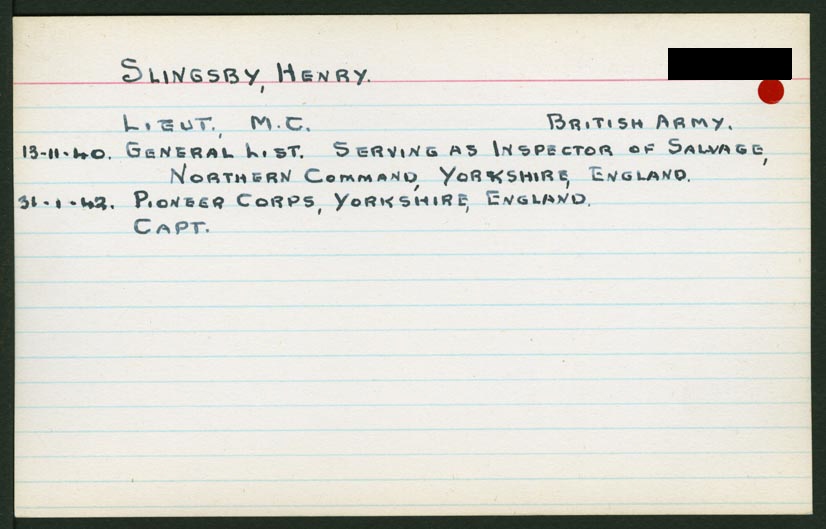 SLINGSBY, HENRY.
LIEUT., M.C. BRITISH ARMY.
13-11-40. GENERAL LIST. SERVING AS INSPECTOR OF SALVAGE,
NORTHERN COMMAND, YORKSHIRE, ENGLAND.
31-1-42. PIONEER CORPS, YORKSHIRE, ENGLAND.
CAPT.